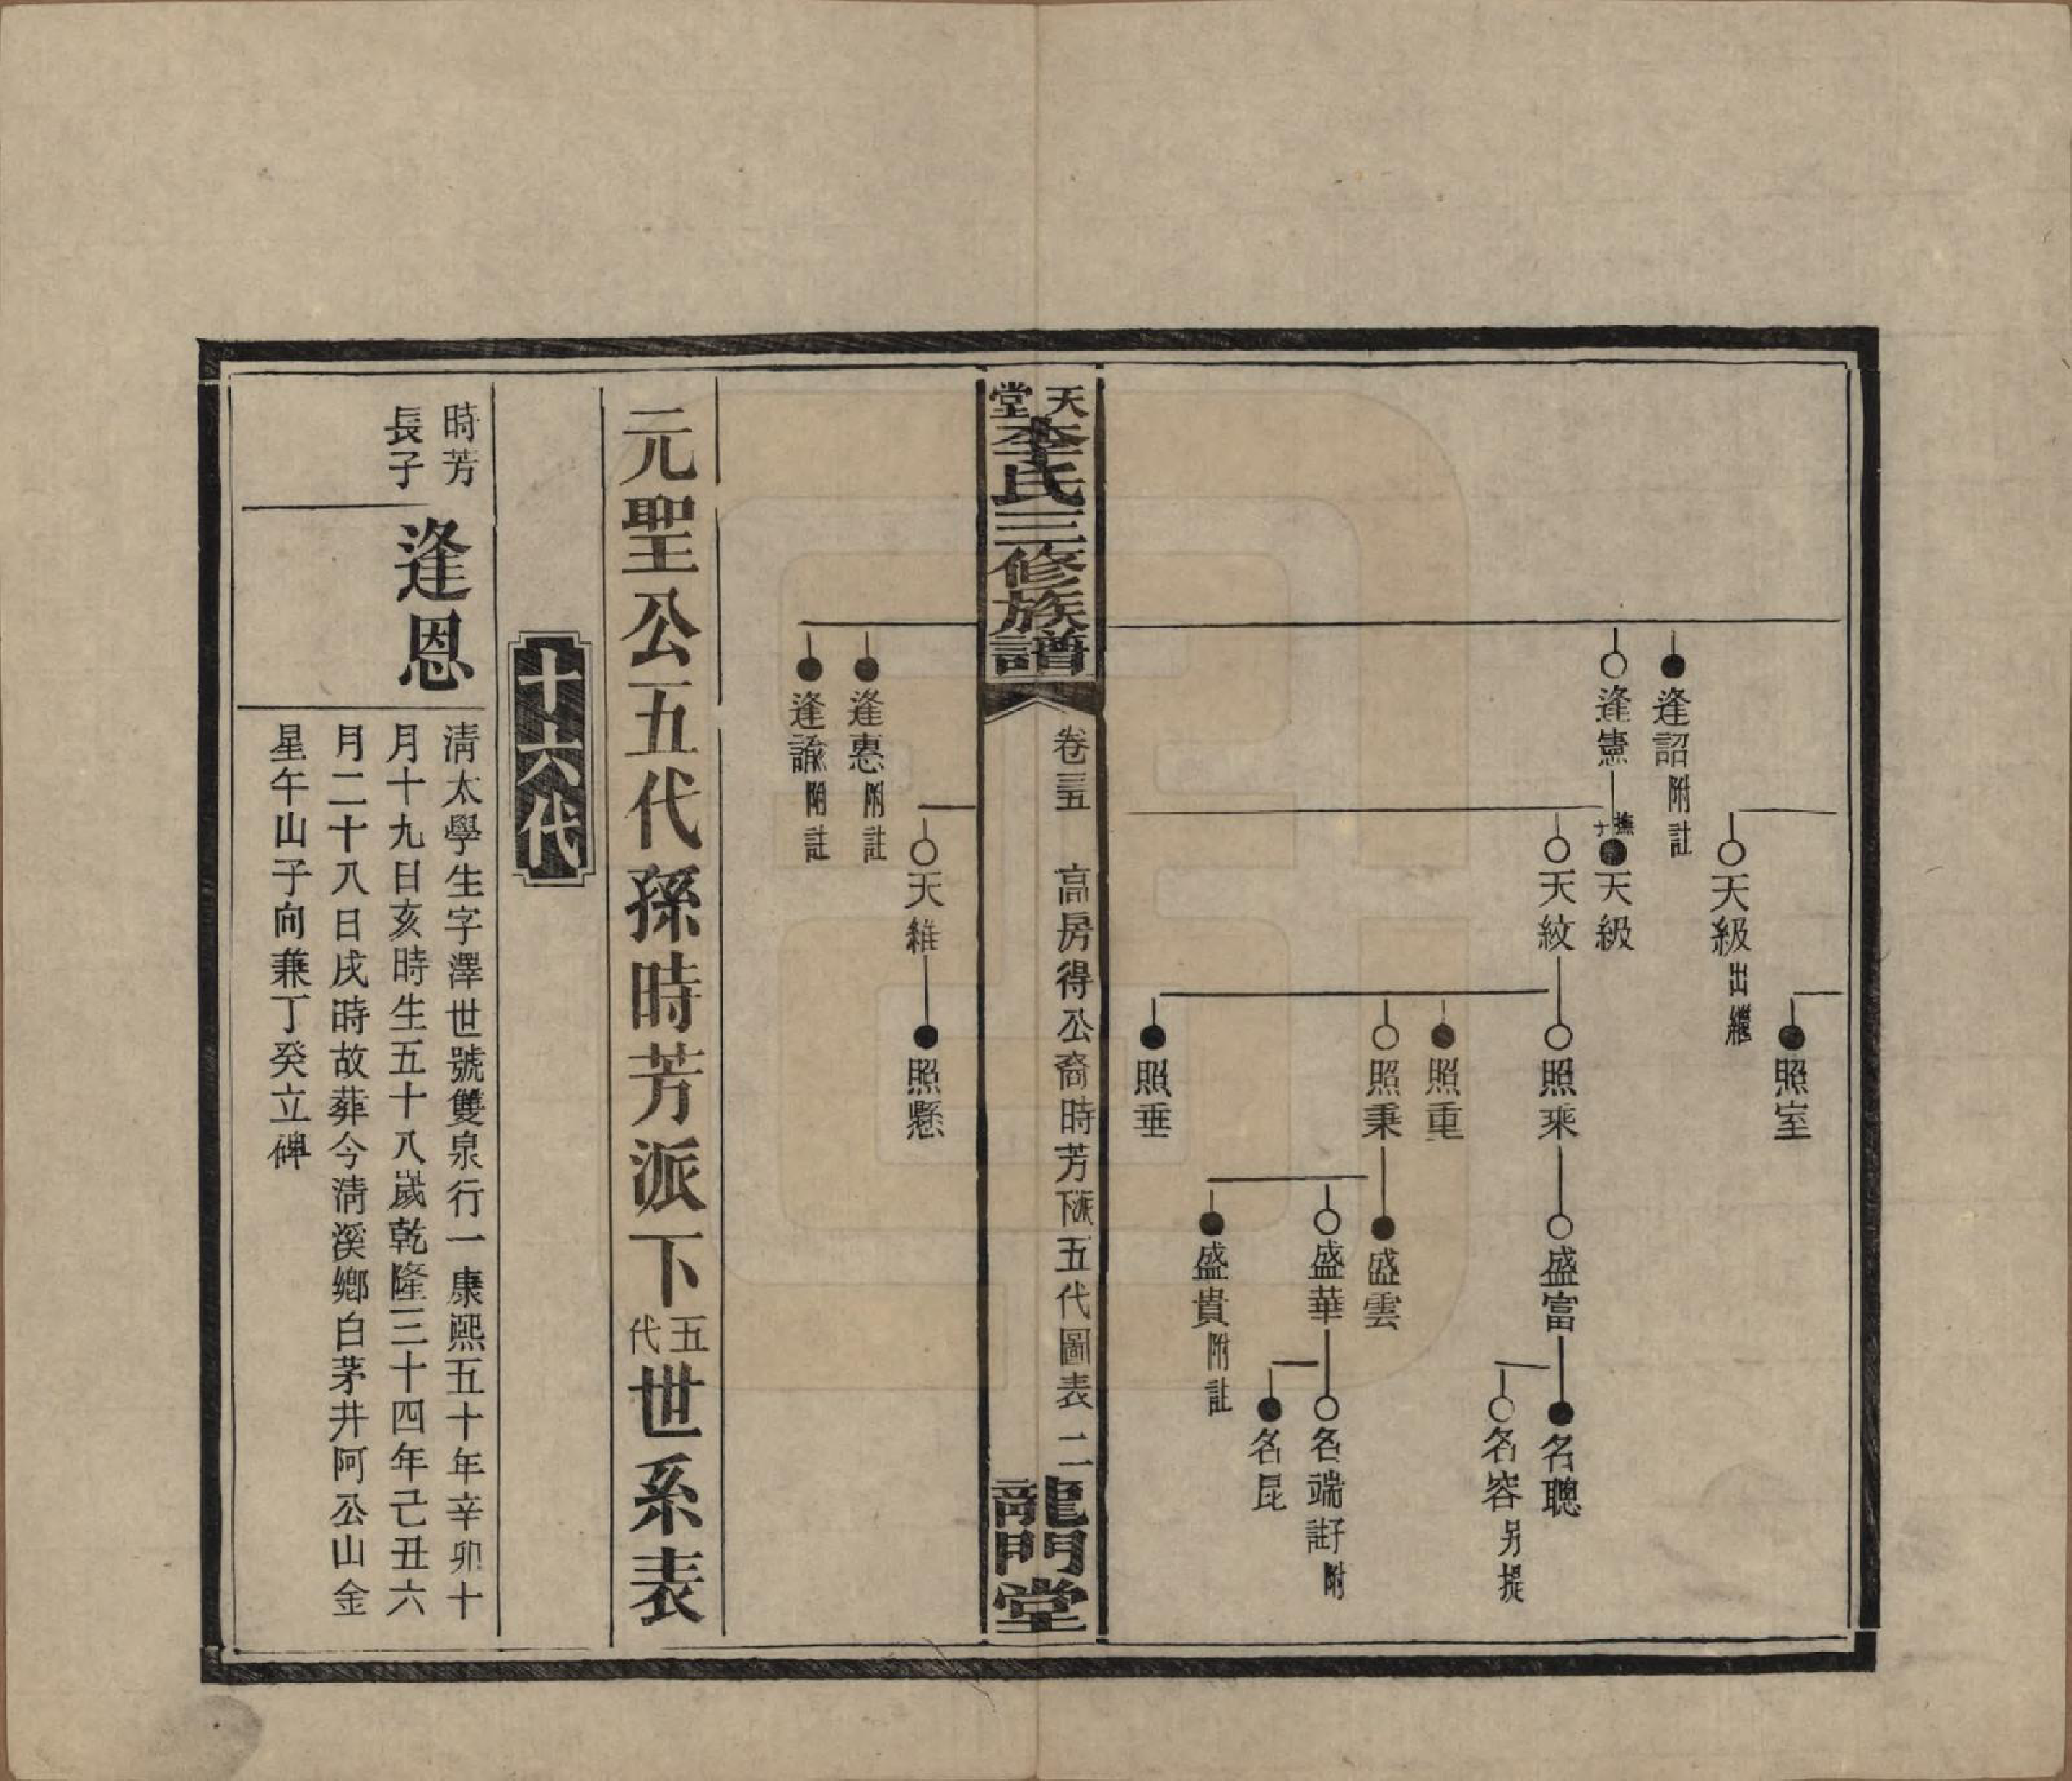 照室
天級出繼
逢詔附註
逢憲
撫子
天級
天紋
照乘
盛富
名聰
名容另提
照重
照秉
盛雲
盛華
名端子附註
名昆
盛貴附註
照垂
天堂李氏三修族譜
卷三五 高房得公裔時芳派下五代圖表 二
龍門堂
天維
照懸
逢惠附註
逢諭附註
元聖公五代孫時芳派下五代世系表
十六代
時芳
長子
逢恩
清太學生字澤世號雙泉行一康熙五十年辛卯十
月十九日亥時生五十八歲乾隆三十四年己丑六
月二十八日戌時故葬今清溪鄉白茅井阿公山金
星午山子向兼丁癸立碑